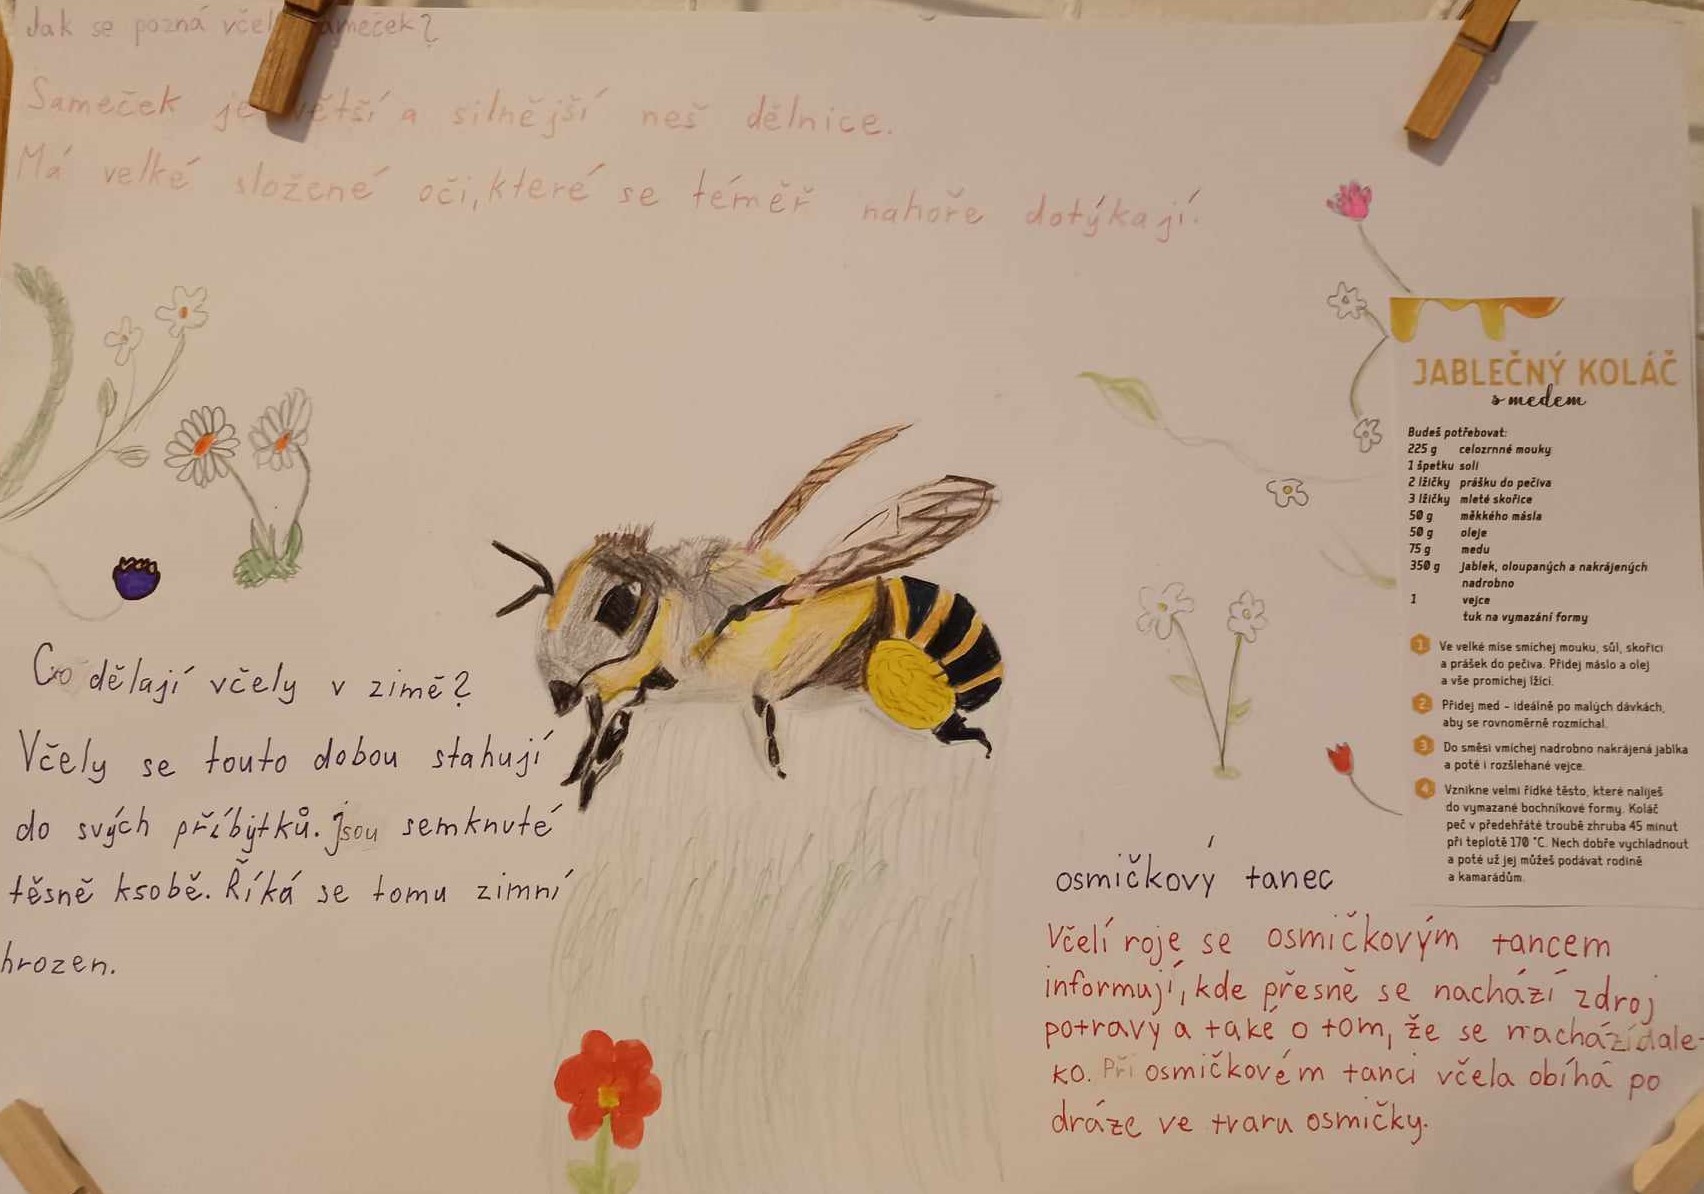 Jak se pozná včelí sameček?
Sameček je větší a silnější neš dělnice.
Má velké složené oči, které se téměř nahoře dotýkají.
Co dělají včely v zimě?
Včely se touto dobou stahují
do svých příbytků. jsou semknuté
těsně ksobě. Říká se tomu zimní
hrozen.
JABLEČNÝ KOLÁČ
s medem
Budeš potřebovat:
225 g celozrnné mouky
1 špetku soli
2 lžičky prášku do pečiva
3 lžičky mleté skořice
50 g měkkého másla
50 g oleje
75 g medu
350 g jablek, oloupaných a nakrájených
nadrobno
1 vejce
tuk na vymazání formy
1 Ve velké míse smíchej mouku, sůl, skořici
a prášek do pečiva. Přidej máslo a olej
a vše promíchej lžící.
2 Přidej med – ideálně po malých dávkách,
aby se rovnoměrně rozmíchal.
3 Do směsi vmíchej nadrobno nakrájená jablka
a poté i rozšlehané vejce.
4 Vznikne velmi řídké těsto, které naliješ
do vymazané bochníkové formy. Koláč
peč v předehřáté troubě zhruba 45 minut
při teplotě 170 °C. Nech dobře vychladnout
a poté už jej můžeš podávat rodině
a kamarádům.
osmičkový tanec
Včelí roje se osmičkovým tancem
informují, kde přesně se nachází zdroj
potravy a také o tom, že se nachází dale-
ko. Při osmičkovém tanci včela obíhá po
dráze ve tvaru osmičky.